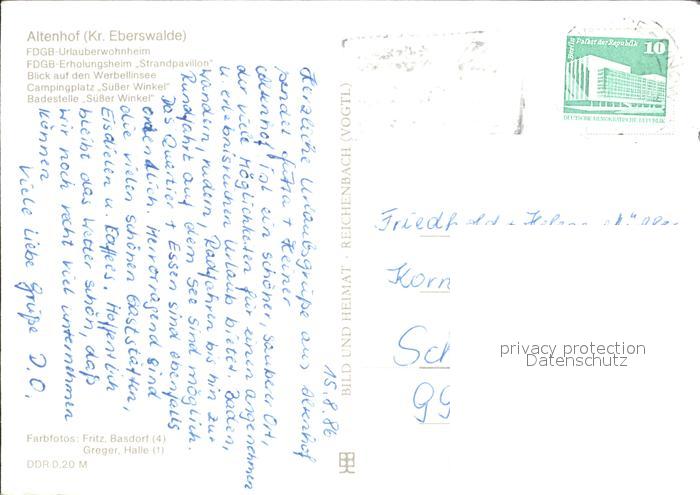 Altenhof (Kr. Eberswalde)
FDGB-Urlauberwohnheim
FDGB-Erholungsheim „Strandpavillon"
Blick auf den Werbellinsee
Campingplatz „Süßer Winkel"
Badestelle „Süßer Winkel"
15.8.86
Herzliche Urlaubsgrüße aus Altenhof
sendet Jutta + Heiner
Altenhof ist ein schöner, sauberer Ort,
der viele Möglichkeiten für einen angenehmen
u. erlebnisreichen Urlaub bietet. Baden,
wandern, rudern, Radfahren bis hin zur
Rundfahrt auf dem See sind möglich.
Das Quartier + Essen sind ebenfalls
ordentlich. Hervorragend sind
die vielen schönen Gaststätten,
Eisdielen u. Kaffees. Hoffentlich
bleibt das Wetter schön, daß
wir noch recht viel unternehmen
können
Viele liebe Grüße D.O.
Farbfotos: Fritz, Basdorf (4)
Greger, Halle (1)
DDR 0,20 M
BILD UND HEIMAT · REICHENBACH (VOGTL)
Berlin Palast der Republik
10
DEUTSCHE DEMOKRATISCHE REPUBLIK
Korn
Sch
99
privacy protection
Datenschutz